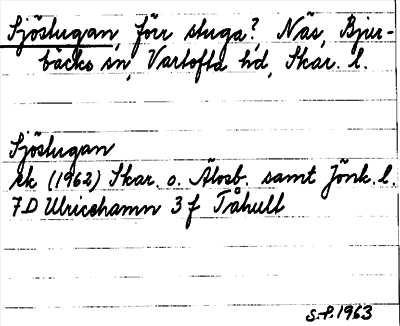 Sjöstugan, förr stuga?, Näs, Bjur-
bäcks sn, Vartofta hd, Skar. l.
Sjöstugan
ek (1962) Skar. o. Älvsb. samt Jönk. l.
7D Ulricehamn 3 f Tråhult
S.P. 1963